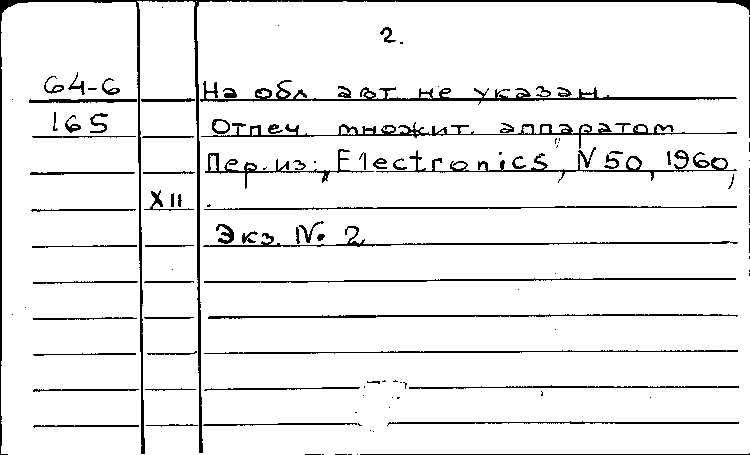 2.
64-6 На обл авт не указан.
165 Отпеч. множит. аппаратом
Пер. из: „Electronics", N 50, 1960,
XII .
Экз. № 2